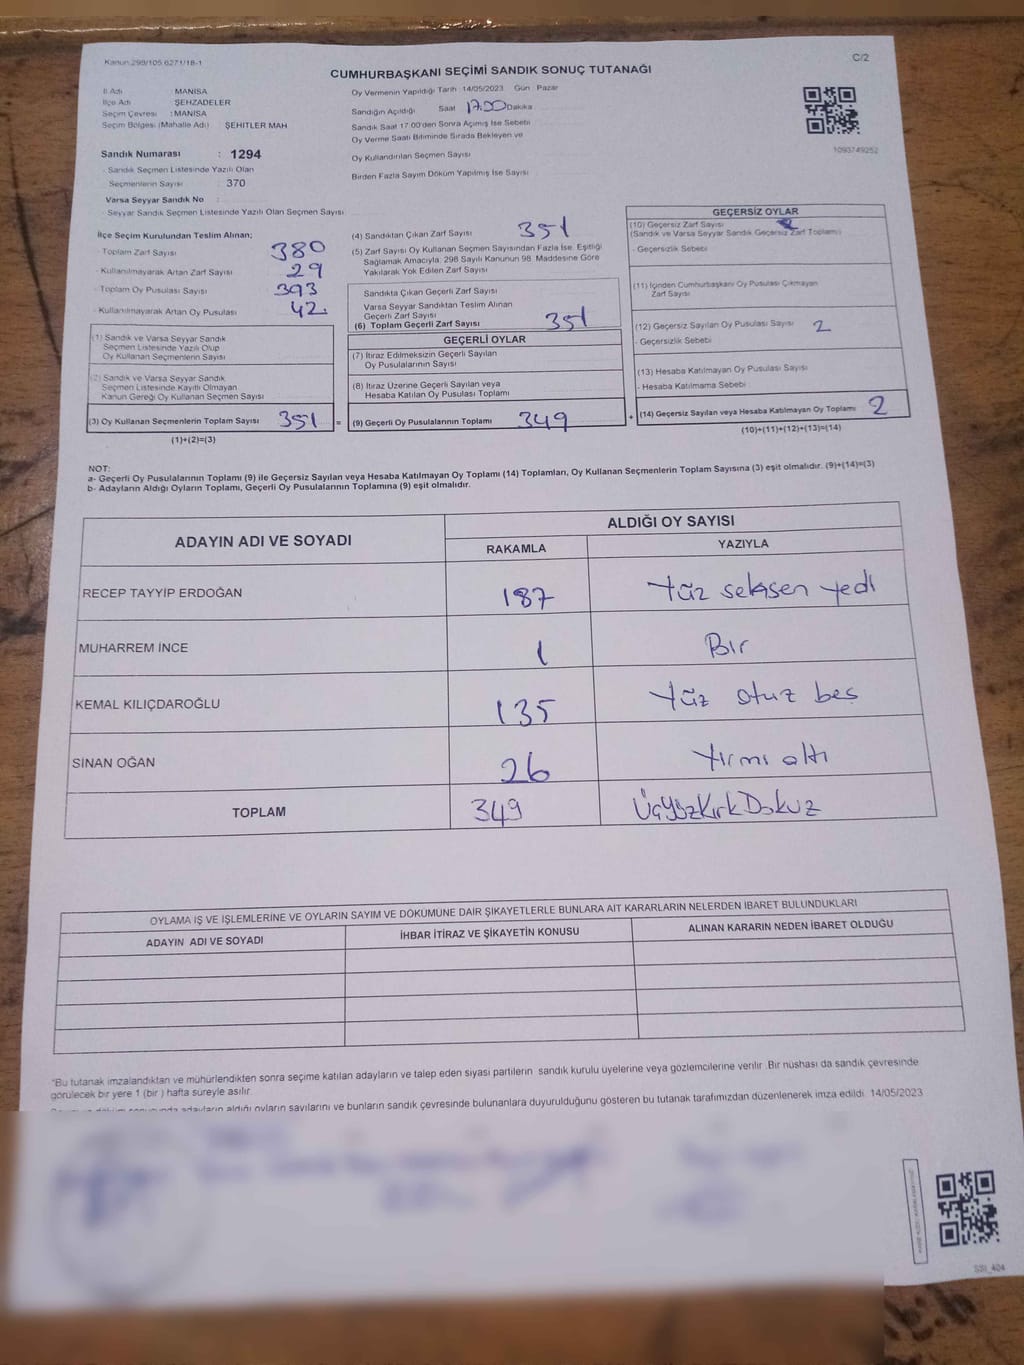 Kanun:298/105 6271/18-1
C/2
CUMHURBAŞKANI SEÇİMİ SANDIK SONUÇ TUTANAĞI
İl Adı : MANİSA
İlçe Adı : ŞEHZADELER
Seçim Çevresi : MANİSA
Seçim Bölgesi (Mahalle Adı) : ŞEHİTLER MAH
Sandık Numarası : 1294
- Sandık Seçmen Listesinde Yazılı Olan
Seçmenlerin Sayısı : 370
Varsa Seyyar Sandık No :
- Seyyar Sandık Seçmen Listesinde Yazılı Olan Seçmen Sayısı
Oy Vermenin Yapıldığı Tarih : 14/05/2023 Gün : Pazar
Sandığın Açıldığı Saat 17.00 Dakika
Sandık Saat 17:00'den Sonra Açımış İse Sebebi
Oy Verme Saati Bitiminde Sırada Bekleyen ve
Oy Kullandırılan Seçmen Sayısı
Birden Fazla Sayım Döküm Yapılmış İse Sayısı
1093749252
İlçe Seçim Kurulundan Teslim Alınan;
- Toplam Zarf Sayısı 380
- Kullanılmayarak Artan Zarf Sayısı 29
- Toplam Oy Pusulası Sayısı 393
- Kullanılmayarak Artan Oy Pusulası 42.
(1) Sandık ve Varsa Seyyar Sandık
Seçmen Listesinde Yazılı Olup
Oy Kullanan Seçmenlerin Sayısı
(2) Sandık ve Varsa Seyyar Sandık
Seçmen Listesinde Kayıtlı Olmayan
Kanun Gereği Oy Kullanan Seçmen Sayısı
(3) Oy Kullanan Seçmenlerin Toplam Sayısı 351 =
(1)+(2)=(3)
(4) Sandıktan Çıkan Zarf Sayısı 351
(5) Zarf Sayısı Oy Kullanan Seçmen Sayısından Fazla İse, Eşitliği
Sağlamak Amacıyla, 298 Sayılı Kanunun 98. Maddesine Göre
Yakılarak Yok Edilen Zarf Sayısı
Sandıkta Çıkan Geçerli Zarf Sayısı
Varsa Seyyar Sandıktan Teslim Alınan
Geçerli Zarf Sayısı
(6) Toplam Geçerli Zarf Sayısı 351
GEÇERLİ OYLAR
(7) İtiraz Edilmeksizin Geçerli Sayılan
Oy Pusulalarının Sayısı
(8) İtiraz Üzerine Geçerli Sayılan veya
Hesaba Katılan Oy Pusulası Toplamı
(9) Geçerli Oy Pusulalarının Toplamı 349 +
GEÇERSİZ OYLAR
(10) Geçersiz Zarf Sayısı
(Sandık ve Varsa Seyyar Sandık Geçersiz Zarf Toplamı)
- Geçersizlik Sebebi
(11) İçinden Cumhurbaşkanı Oy Pusulası Çıkmayan
Zarf Sayısı
(12) Geçersiz Sayılan Oy Pusulası Sayısı 2
- Geçersizlik Sebebi
(13) Hesaba Katılmayan Oy Pusulası Sayısı
- Hesaba Katılmama Sebebi
(14) Geçersiz Sayılan veya Hesaba Katılmayan Oy Toplamı 2
(10)+(11)+(12)+(13)=(14)
NOT:
a- Geçerli Oy Pusulalarının Toplamı (9) ile Geçersiz Sayılan veya Hesaba Katılmayan Oy Toplamı (14) Toplamları, Oy Kullanan Seçmenlerin Toplam Sayısına (3) eşit olmalıdır. (9)+(14)=(3)
b- Adayların Aldığı Oyların Toplamı, Geçerli Oy Pusulalarının Toplamına (9) eşit olmalıdır.
ADAYIN ADI VE SOYADI
ALDIĞI OY SAYISI
RAKAMLA YAZIYLA
RECEP TAYYİP ERDOĞAN 187 Yüz seksen yedi
MUHARREM İNCE 1 Bir
KEMAL KILIÇDAROĞLU 135 Yüz otuz beş
SİNAN OĞAN 26 Yirmi altı
TOPLAM 349 ÜçYüzKırkDokuz
OYLAMA İŞ VE İŞLEMLERİNE VE OYLARIN SAYIM VE DÖKÜMÜNE DAİR ŞİKAYETLERLE BUNLARA AİT KARARLARIN NELERDEN İBARET BULUNDUKLARI
ADAYIN ADI VE SOYADI İHBAR İTİRAZ VE ŞİKAYETİN KONUSU ALINAN KARARIN NEDEN İBARET OLDUĞU
"Bu tutanak imzalandıktan ve mühürlendikten sonra seçime katılan adayların ve talep eden siyasi partilerin sandık kurulu üyelerine veya gözlemcilerine verilir. Bir nüshası da sandık çevresinde
görülecek bir yere 1 (bir) hafta süreyle asılır.
adayların aldığı oyların sayılarını ve bunların sandık çevresinde bulunanlara duyurulduğunu gösteren bu tutanak tarafımızdan düzenlenerek imza edildi. 14/05/2023
SSI_404